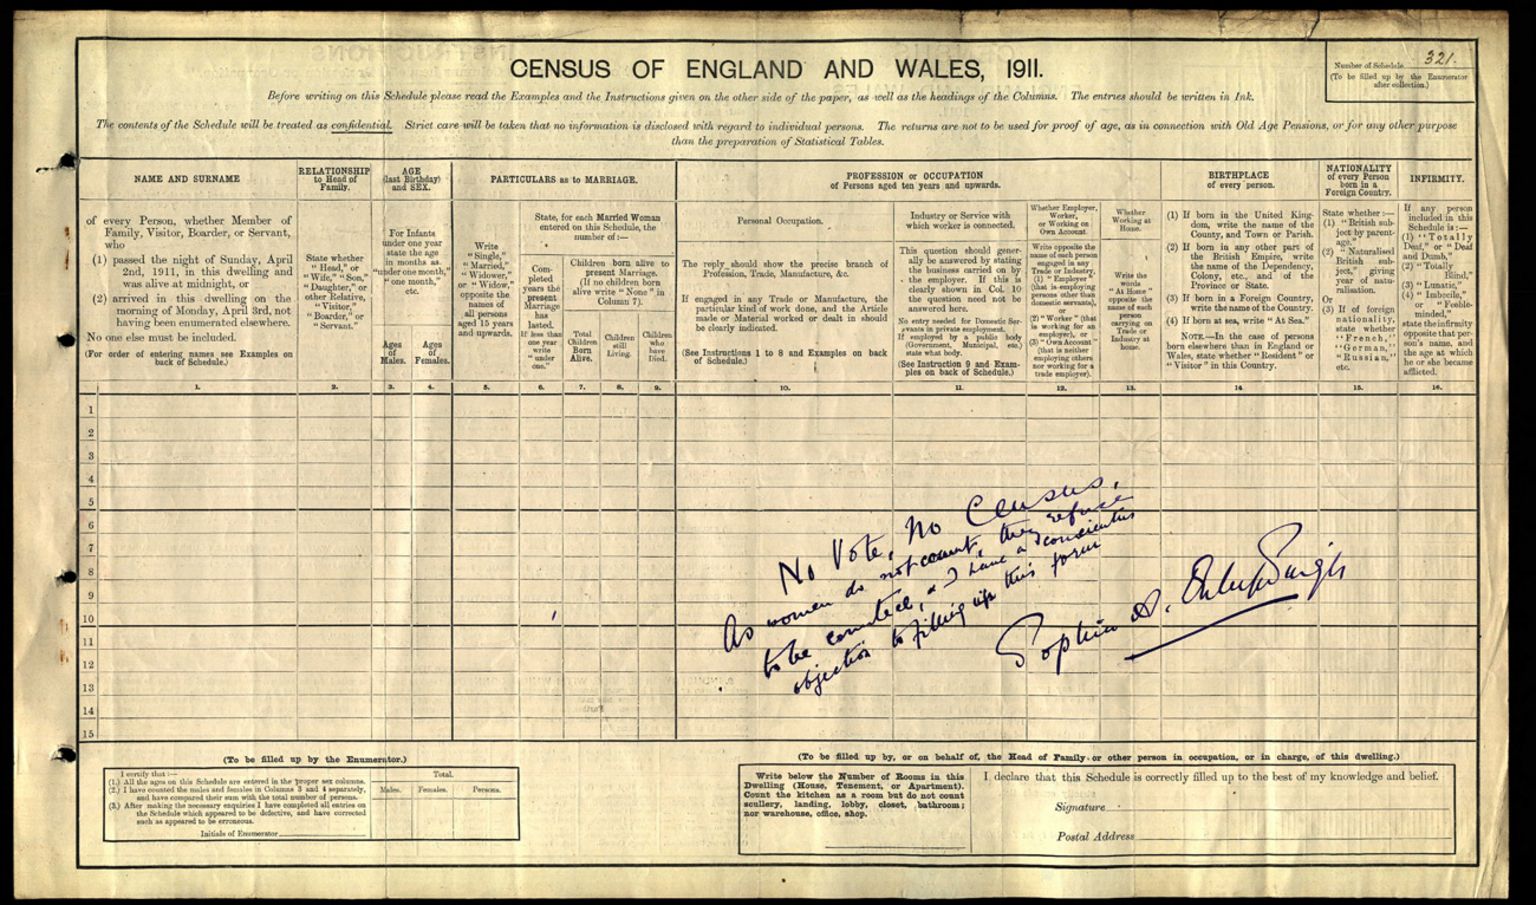 Number of Schedule 321.
(To be filled up by the Enumerator
after collection.)
CENSUS OF ENGLAND AND WALES, 1911.
Before writing on this Schedule please read the Examples and the Instructions given on the other side of the paper, as well as the headings of the Columns. The entries should be written in Ink.
The contents of the Schedule will be treated as confidential. Strict care will be taken that no information is disclosed with regard to individual persons. The returns are not to be used for proof of age, as in connection with Old Age Pensions, or for any other purpose
than the preparation of Statistical Tables.
NAME AND SURNAME
of every Person, whether Member of
Family, Visitor, Boarder, or Servant,
who
(1) passed the night of Sunday, April
2nd, 1911, in this dwelling and
was alive at midnight, or
(2) arrived in this dwelling on the
morning of Monday, April 3rd, not
having been enumerated elsewhere.
No one else must be included.
(For order of entering names see Examples on
back of Schedule.)
RELATIONSHIP
to Head of
Family.
State whether
"Head," or
"Wife," "Son,"
"Daughter," or
other Relative,
"Visitor,"
"Boarder," or
"Servant."
AGE
(last Birthday)
and SEX.
For Infants
under one year
state the age
in months as
"under one month,"
"one month,"
etc.
Ages
of
Males.
Ages
of
Females.
PARTICULARS as to MARRIAGE.
Write
"Single,"
"Married,"
"Widower,"
or "Widow,"
opposite the
names of
all persons
aged 15 years
and upwards.
State, for each Married Woman
entered on this Schedule, the
number of:—
Com-
pleted
years the
present
Marriage
has
lasted.
If less than
one year
write
"under
one."
Children born alive to
present Marriage.
(If no children born
alive write "None" in
Column 7).
Total
Children
Born
Alive.
Children
still
Living.
Children
who
have
Died.
PROFESSION or OCCUPATION
of Persons aged ten years and upwards.
Personal Occupation.
The reply should show the precise branch of
Profession, Trade, Manufacture, &c.
If engaged in any Trade or Manufacture, the
particular kind of work done, and the Article
made or Material worked or dealt in should
be clearly indicated.
(See Instructions 1 to 8 and Examples on back
of Schedule.)
Industry or Service with
which worker is connected.
This question should gener-
ally be answered by stating
the business carried on by
the employer. If this is
clearly shown in Col. 10
the question need not be
answered here.
No entry needed for Domestic Ser-
vants in private employment.
If employed by a public body
(Government, Municipal, etc.)
state what body.
(See Instruction 9 and Exam-
ples on back of Schedule.)
Whether Employer,
Worker,
or Working on
Own Account.
Write opposite the
name of each person
engaged in any
Trade or Industry,
(1) "Employer"
(that is employing
persons other than
domestic servants),
or
(2) "Worker" (that
is working for an
employer), or
(3) "Own Account"
(that is neither
employing others
nor working for a
trade employer).
Whether
Working at
Home.
Write the
words
"At Home"
opposite the
name of each
person
carrying on
Trade or
Industry at
home.
BIRTHPLACE
of every person.
(1) If born in the United King-
dom, write the name of the
County, and Town or Parish.
(2) If born in any other part of
the British Empire, write
the name of the Dependency,
Colony, etc., and of the
Province or State.
(3) If born in a Foreign Country,
write the name of the Country.
(4) If born at sea, write "At Sea."
NOTE.—In the case of persons
born elsewhere than in England or
Wales, state whether "Resident" or
"Visitor" in this Country.
NATIONALITY
of every Person
born in a
Foreign Country.
State whether:—
(1) "British sub-
ject by parent-
age,"
(2) "Naturalised
British sub-
ject," giving
year of natu-
ralisation.
Or
(3) If of foreign
nationality,
state whether
"French,"
"German,"
"Russian,"
etc.
INFIRMITY.
If any person
included in this
Schedule is:—
(1) "Totally
Deaf," or "Deaf
and Dumb,"
(2) "Totally
Blind,"
(3) "Lunatic,"
(4) "Imbecile,"
or "Feeble-
minded,"
state the infirmity
opposite that per-
son's name, and
the age at which
he or she became
afflicted.
1. 2. 3. 4. 5. 6. 7. 8. 9. 10. 11. 12. 13. 14. 15. 16.
1
2
3
4
5
6
7
8
9
10
11
12
13
14
15
No Vote, No Census.
As women do not count, they refuse
to be counted, & I have a conscientious
objection to filling up this form
Sophia A. Duleep Singh
(To be filled up by the Enumerator.)
I certify that:—
(1.) All the ages on this Schedule are entered in the proper sex columns.
(2.) I have counted the males and females in Columns 3 and 4 separately,
and have compared their sum with the total number of persons.
(3.) After making the necessary enquiries I have completed all entries on
the Schedule which appeared to be defective, and have corrected
such as appeared to be erroneous.
Initials of Enumerator
Total.
Males. Females. Persons.
(To be filled up by, or on behalf of, the Head of Family or other person in occupation, or in charge, of this dwelling.)
Write below the Number of Rooms in this
Dwelling (House, Tenement, or Apartment).
Count the kitchen as a room but do not count
scullery, landing, lobby, closet, bathroom;
nor warehouse, office, shop.
I declare that this Schedule is correctly filled up to the best of my knowledge and belief.
Signature
Postal Address